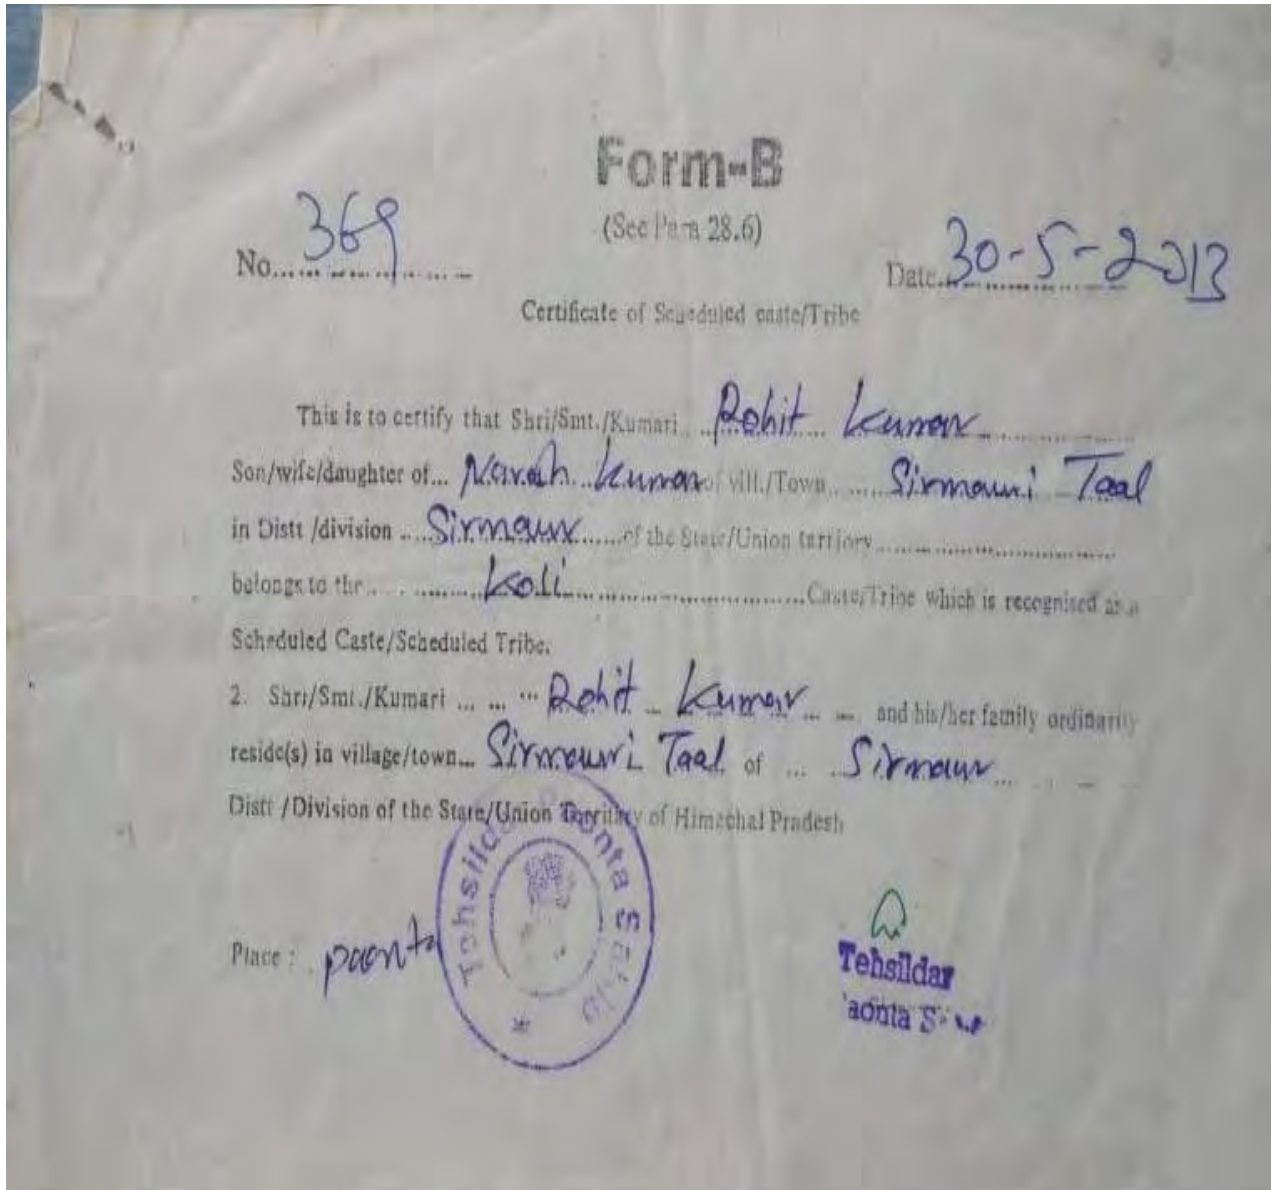 Form-B
(See Para 28.6)
No. 369
Date 30-5-2013
Certificate of Scheduled caste/Tribe
This is to certify that Shri/Smt./Kumari Rohit Kumar
Son/wife/daughter of... Naresh Kumar of vill./Town Sirmouri Taal
in Distt /division Sirmaur of the State/Union tarrjory
belongs to the Koli Caste/Tribe which is recognised as a
Scheduled Caste/Scheduled Tribe.
2. Shri/Smt./Kumari Rohit Kumar and his/her family ordinarity
reside(s) in village/town... Sirmouri Taal of Sirmour
Distt /Division of the State/Union Territory of Himachal Pradesh
Place : paonta
Tehsildar Paonta Sahib
Tehsildar
aonta S